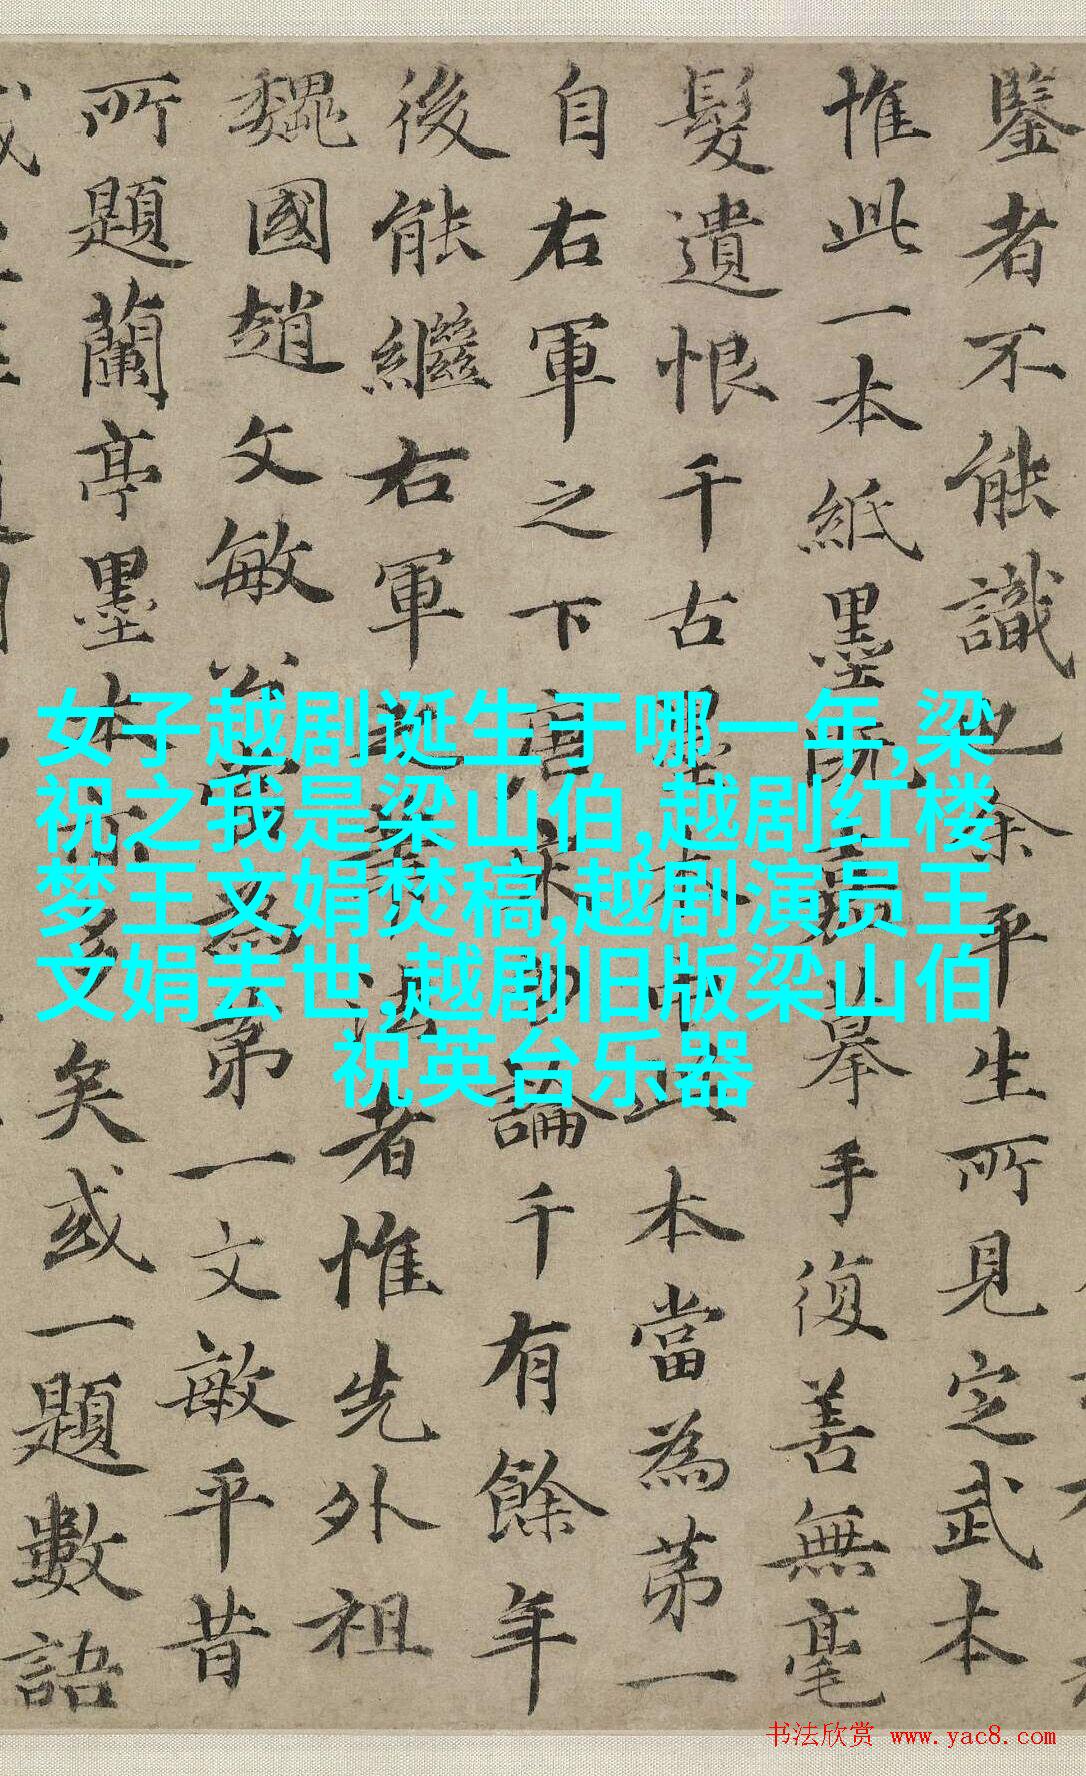 鑒者不能識也余平生所見定武本
惟此一本紙墨既摹手復善無毫
髮遺恨千古墨本中此本當為苐一
自右軍之下唐宋論千有餘年
後能繼右軍者惟先外祖
魏國趙文敏公當為苐一文敏平昔
所題蘭亭墨本亦多矣或一題數語
女子越剧诞生于哪一年,梁
祝之我是梁山伯,越剧红楼
梦王文娟焚稿,越剧演员王
文娟去世,越剧旧版梁山伯
祝英台乐器
书法欣赏 www.yac8.com